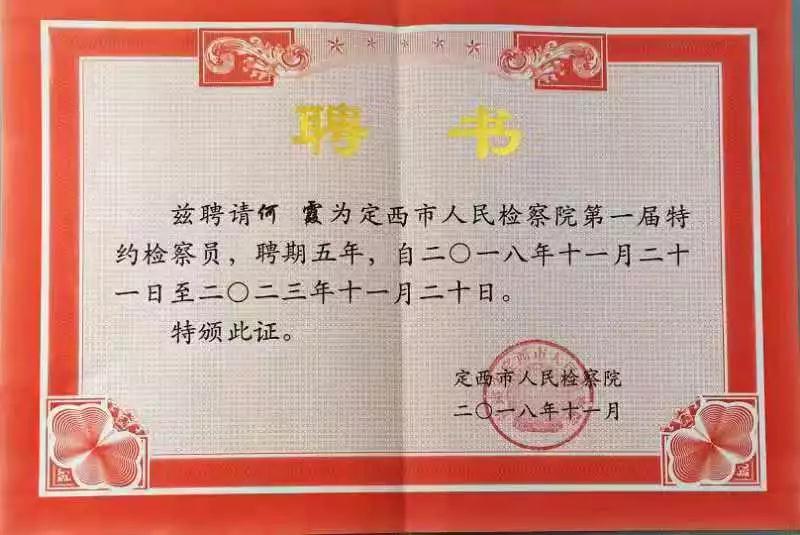 聘书
兹聘请何霞为定西市人民检察院第一届特
约检察员，聘期五年，自二〇一八年十一月二十
一日至二〇二三年十一月二十日。
特颁此证。
定西市人民检察院
二〇一八年十一月